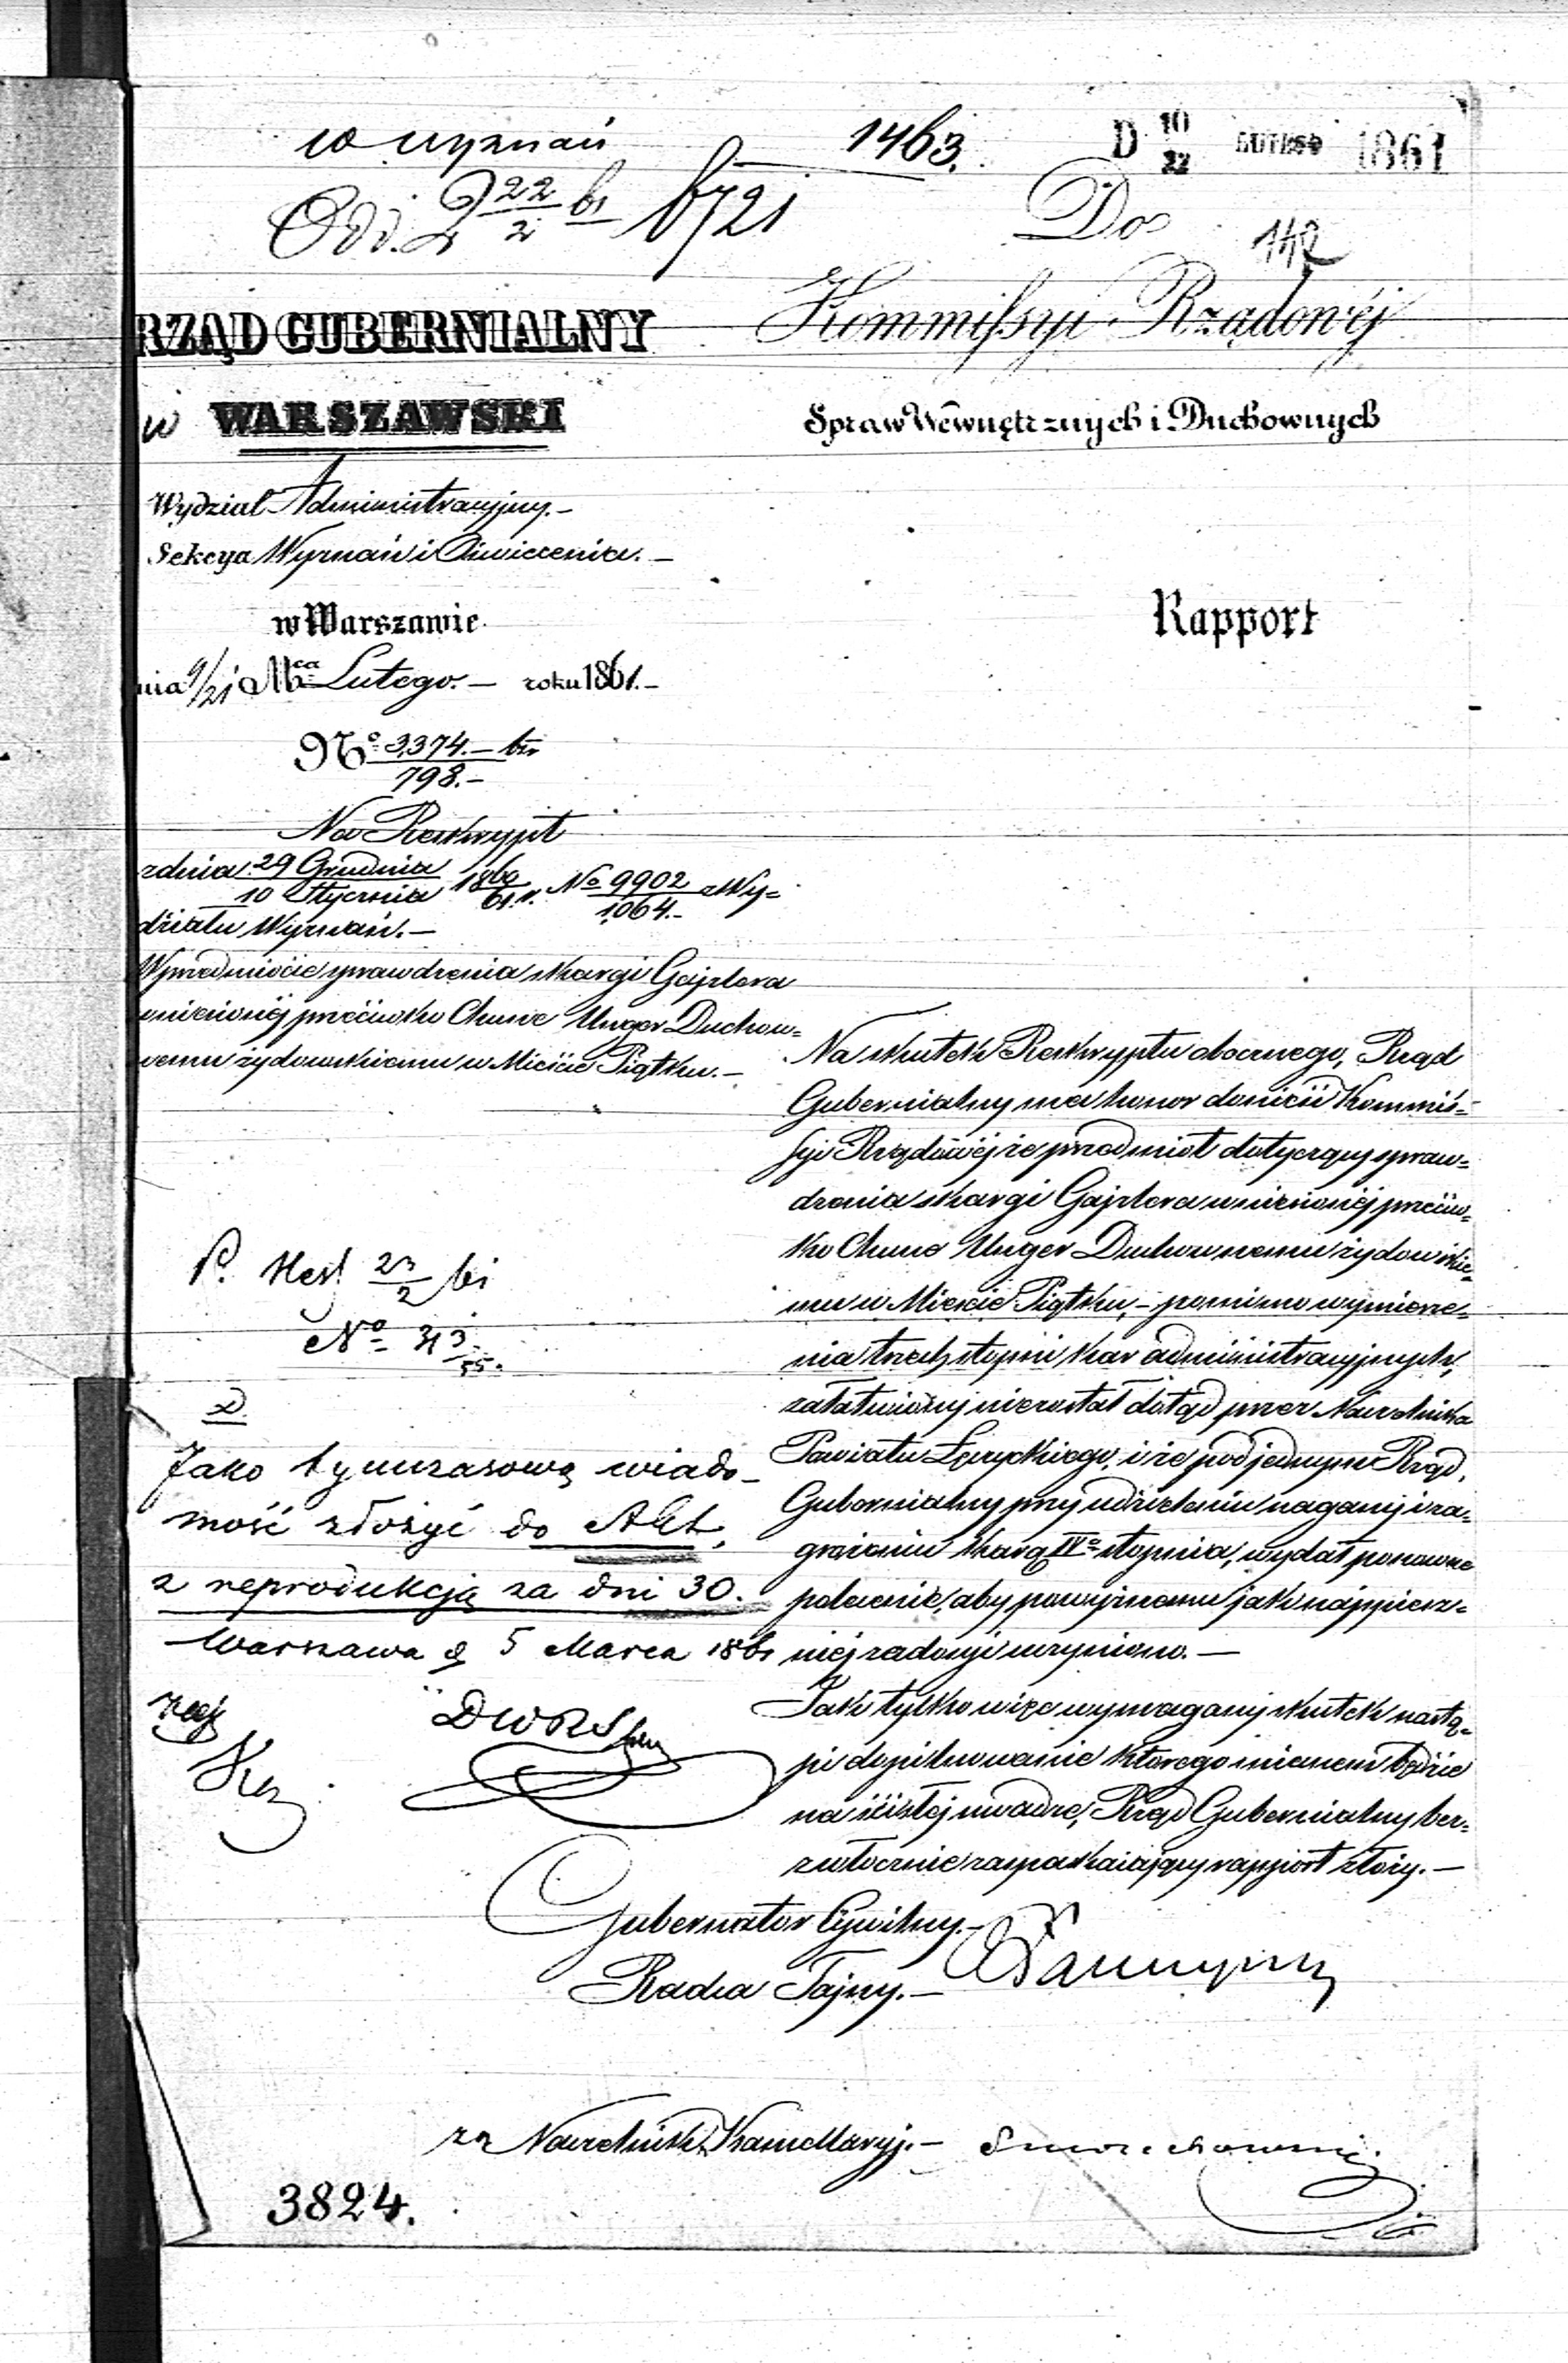 w wyznań
1463.
D 10/22 LUTEGO 1861
Odd. 22/2 61 6721
Do
142
RZĄD GUBERNIALNY
WARSZAWSKI
Kommissyi Rządowéj
Spraw Wewnętrznych i Duchownych
Wydział Administracyjny.-
Sekcya Wyznań i Oświecenia.-
w Warszawie
Rapport
nia 9/21 Mca Lutego.- roku 1861.-
No 3,374.- bis
798.-
Na Reskrypt
z dnia 29 Grudnia / 10 Stycznia 1860/61 r. No 9902 / 1064.- z Wy=
działu Wyznań.-
W przedmiocie sprawdzenia skargi Gajzlera
wniesionéj przeciwko Chune Unger Duchow=
nemu żydowskiemu w Mieście Piątku.-
Na skutek Reskryptu obocznego, Rząd
Gubernialny ma honor donieść Kommis=
syi Rządowéj że przedmiot dotyczący spraw=
dzenia skargi Gajzlera wniesionéj przeciw=
ko Chune Unger Duchownemu żydowskie=
mu w Mieście Piątku,- pomimo wymierze=
nia trzech stopni kar administracyjnych,
załatwiony niezostał dotąd przez Naczelnika
Powiatu Łęczyckiego, i że pod jednym Rząd
Gubernialny przy udzieleniu nagany i za=
grożeniu karą IVo stopnia, wydał ponowne
polecenie, aby powyższemu jak najspiesz=
niej zadosyć uczyniono.-
Jak tylko więc wymagany skutek nastą=
pi dopilnowanie którego mianem będzie
na ścisłej uwadze, Rząd Gubernialny bez=
zwłocznie zaspakajający rapport złoży.-
P. 23/2 61
No 43/55.
D
Jako tymczasową wiado-
mość złożyć do Akt,
z reprodukcją za dni 30.
Warszawa d 5 Marca 1861
Gubernator Cywilny.-
Radca Tajny.-
za Naczelnika Kancellaryj.-
3824.